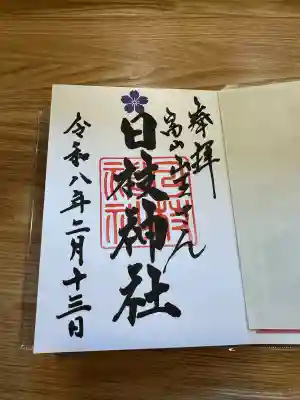 奉拝
畠山生さん
日枝神社
令和八年二月十三日